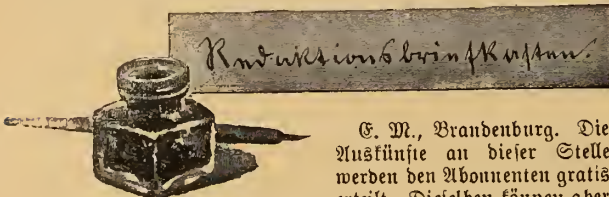 Redaktionsbriefkasten.
E. M., Brandenburg. Die
Auskünfte an dieser Stelle
werden den Abonnenten gratis
erteilt. Dieselben können aber